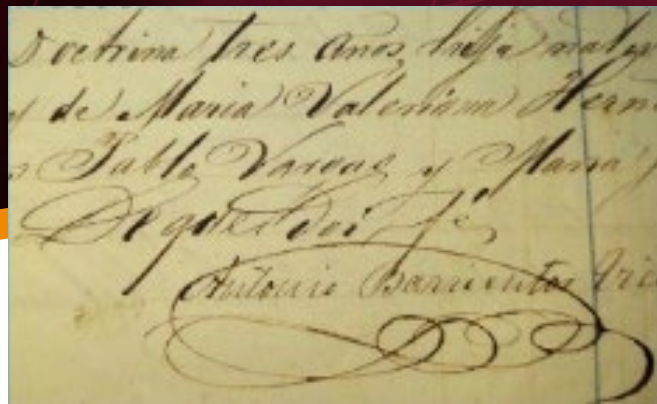 Doctrina tres años, hija natur
y de Maria Valeriana Hern
Pablo Vargas y Maria
De que doi fé
Antonio Barrientos